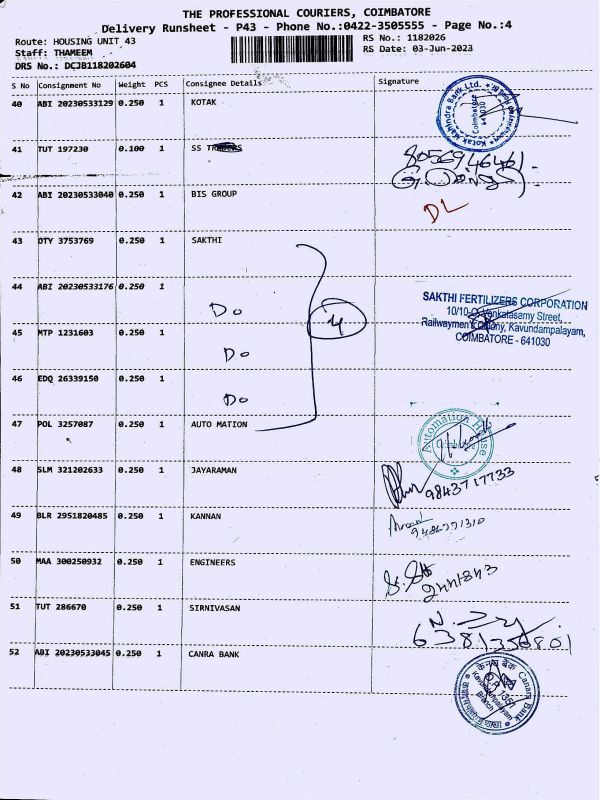 THE PROFESSIONAL COURIERS, COIMBATORE
Delivery Runsheet - P43 - Phone No.:0422-3505555 - Page No.:4
Route: HOUSING UNIT 43
RS No.: 1182026
Staff: THAMEEM
RS Date: 03-Jun-2023
DRS No.: DCJB118202604
S No Consignment No Weight PCS Consignee Details Signature
40 ABI 20230533129 0.250 1 KOTAK
Kotak Mahindra Bank Ltd.
Coimbatore
641030
41 TUT 197230 0.100 1 SS
8056946461
42 ABI 20230533040 0.250 1 BIS GROUP
DL
43 OTY 3753769 0.250 1 SAKTHI
44 ABI 20230533176 0.250 1 Do
4
SAKTHI FERTILIZERS CORPORATION
10/10-O, Venkatasamy Street,
Railwaymen's Colony, Kavundampalayam,
COIMBATORE - 641030
45 MTP 1231603 0.250 1 Do
46 EDQ 26339150 0.250 1 Do
47 POL 3257087 0.250 1 AUTO MATION
Automation House
48 SLM 321202633 0.250 1 JAYARAMAN
9843717733
49 BLR 2951820485 0.250 1 KANNAN
50 MAA 300250932 0.250 1 ENGINEERS
2441843
51 TUT 286670 0.250 1 SIRNIVASAN
52 ABI 20230533045 0.250 1 CANRA BANK
केनरा बैंक Canara Bank
Branch